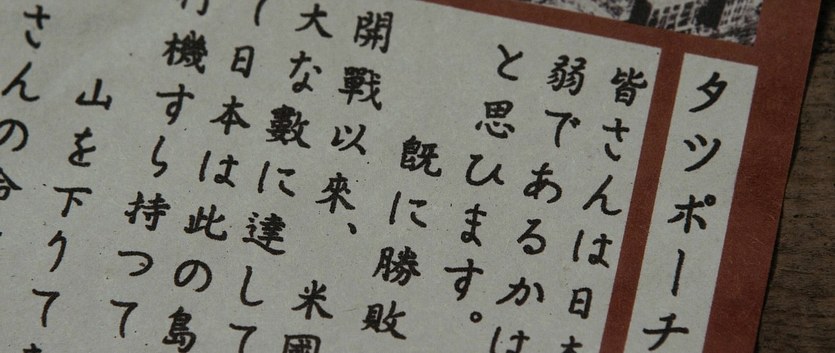 タツポーチ
皆さんは日
弱であるかは
と思ひます。
既に勝敗
開戰以來、米國
大な數に達して
日本は此の島
機すら持つて
山を下りて
さんの